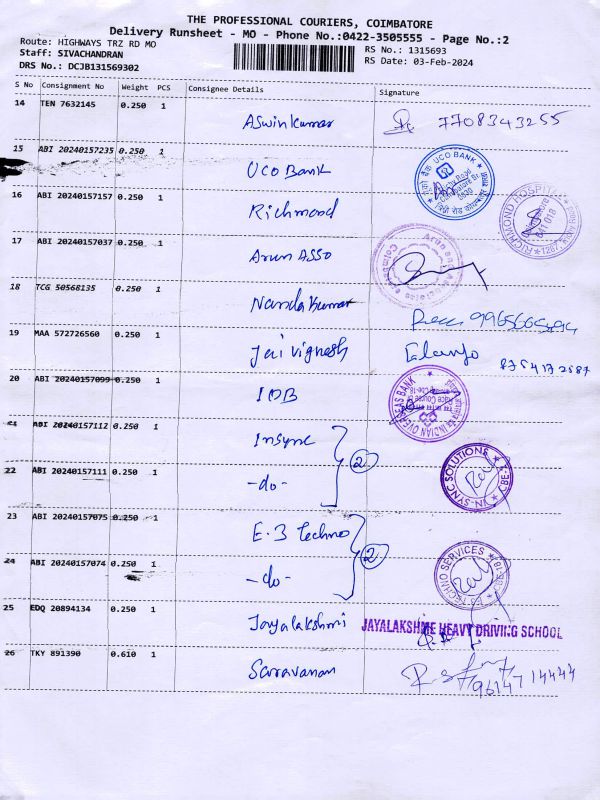 THE PROFESSIONAL COURIERS, COIMBATORE
Delivery Runsheet - MO - Phone No.:0422-3505555 - Page No.:2
Route: HIGHWAYS TRZ RD MO
Staff: SIVACHANDRAN
DRS No.: DCJB131569302
RS No.: 1315693
RS Date: 03-Feb-2024
S No Consignment No Weight PCS Consignee Details Signature
14 TEN 7632145 0.250 1 Aswinkumar 7708343255
15 ABI 20240157235 0.250 1 UCO Bank
UCO BANK
16 ABI 20240157157 0.250 1 Richmond
RICHMOND HOSPITAL
641 018
17 ABI 20240157037 0.250 1 Arun ASSO
18 TCG 50568135 0.250 1 Nandakumar
19 MAA 572726560 0.250 1 Jai Vignesh
20 ABI 20240157099 0.250 1 IOB
INDIAN OVERSEAS BANK
21 ABI 20240157112 0.250 1 Insync
2
22 ABI 20240157111 0.250 1 -do-
IN-SYNC SOLUTIONS
23 ABI 20240157075 0.250 1 E.3 Techno
2
24 ABI 20240157074 0.250 1 -do-
TECHNO SERVICES
25 EDQ 20894134 0.250 1 Jayalakshmi JAYALAKSHME HEAVY DRIVING SCHOOL
26 TKY 891390 0.610 1 Saravanan
9614714444